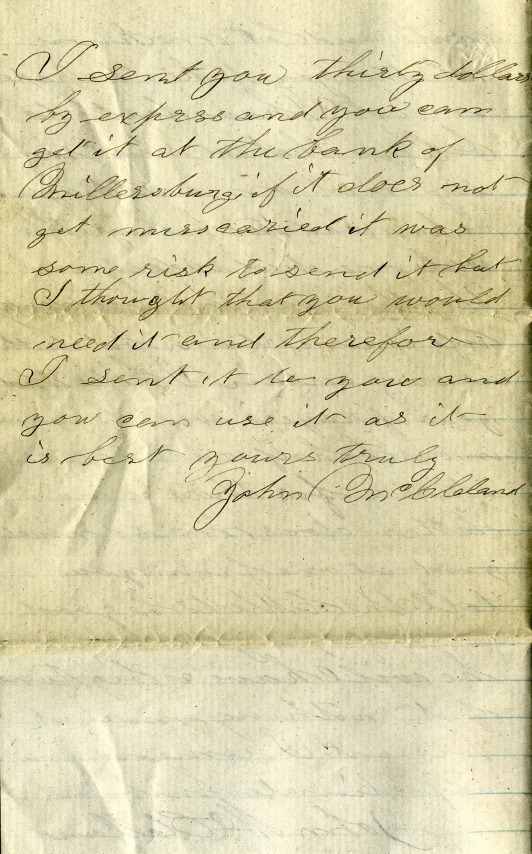 I sent you thirty dollars
by exprss and you can
get it at the bank of
Millersburg if it does not
get misscaried it was
some risk to send it but
I thought that you would
need it and therefor
I sent it to you and
you can use it as it
is best yours truly
John McCleland